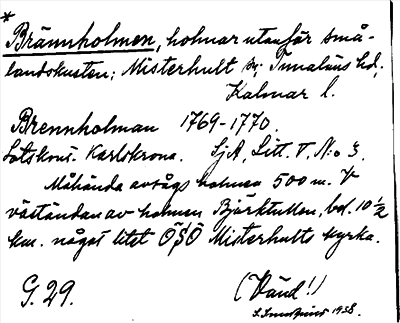 *
Brännholmen, holmar utanför små-
landskusten; Misterhult sn; Tunaläns hd;
Kalmar l.
Brennholman 1769-1770
Lotskont. Karlskrona. SjA, Litt. V, N:o 3.
Måhända avses holmen 500 m. V
väst ändan av holmen Björktullen, bel. 10 1/2
km. något litet ÖSÖ Misterhults kyrka.
G. 29. (Vänd!)
1938.